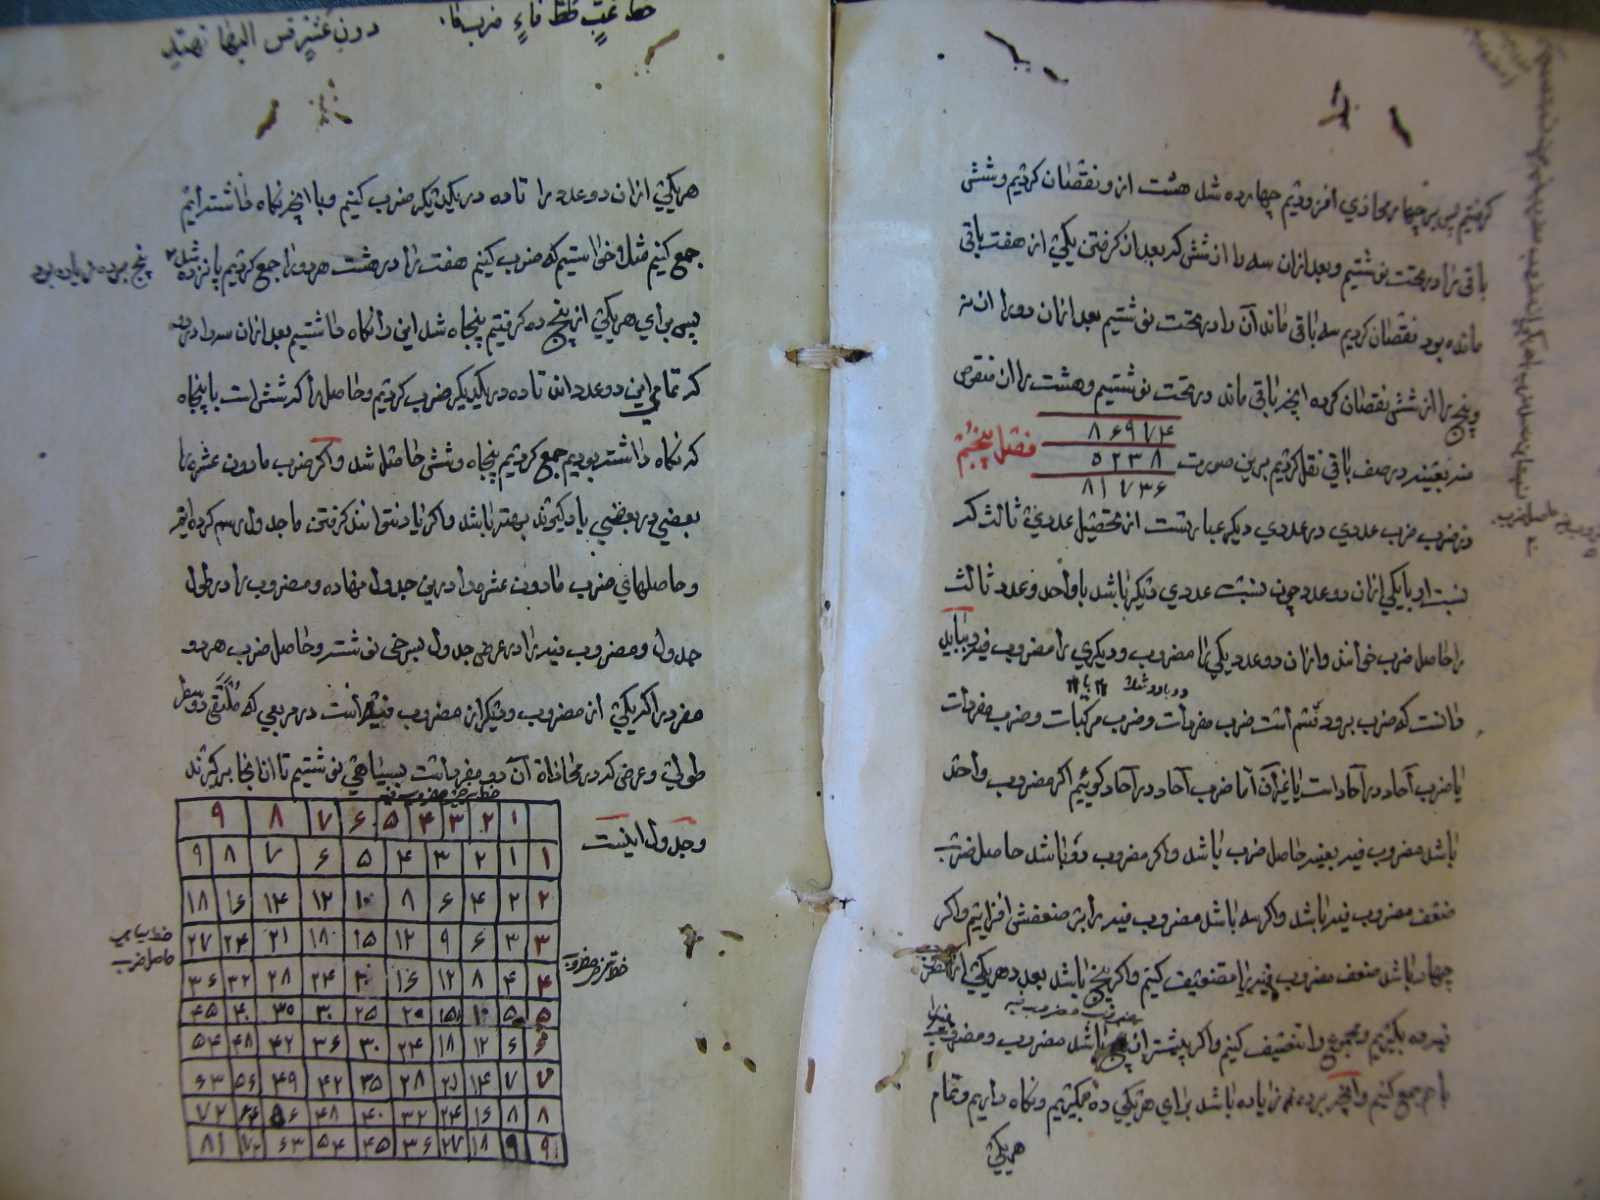 گرفتیم پس بر چهار محاذی افزودیم چهارده شد هشت ازو نقصان کردیم و شش
باقی را در تحت نوشتیم و بعد ازان سه را از شش که بعد از گرفتن یکی از هفت باقی
مانده بود نقصان کردیم سه باقی ماند آن را در تحت نوشتیم بعد ازان دو را از نه
و پنج را از شش نقصان کرده انچه باقی ماند در تحت نوشتیم و هشت را از منقوص
منه بعینه در صف باقی نقل کردیم برین صورت
۸۶۹۷۴
۵۲۳۸
۸۱۷۳۶
فصل پنجم
در ضرب ضرب عددی در عددی دیگر عبارتست از تحصیل عددی ثالث که
نسبت او با یکی ازان دو عدد چون نسبت عددی دیگر باشد با واحد و عدد ثالث
را حاصل ضرب خوانند و ازان دو عدد یکی را مضروب و دیگری را مضروب فیه و بباید
دانست که ضرب برو قسم است ضرب مفردات و ضرب مرکبات و ضرب مفردات
یا ضرب آحاد در آحاد است یا غیر آن اما ضرب آحاد در آحاد گوییم اگر مضروب واحد
باشد مضروب فیه بعینه حاصل ضرب باشد و اگر مضروب دو باشد حاصل ضرب
ضعف مضروب فیه باشد و اگر سه باشد مضروب فیه را بر ضعفش افزاییم و اگر
چهار باشد ضعف مضروب فیه را تضعیف کنیم و اگر پنج باشد بعدد هر یکی از مضروب
فیه ده بگیریم و مجموع را تنصیف کنیم و اگر بیشتر از پنج باشد مضروب و مضروب فیه را
با هم جمع کنیم و آنچه بر ده زیاده باشد برای هر یکی ده بگیریم و نگاه داریم و تمام
هر یکی
هر یکی ازان دو عدد را تا ده در یکدیگر ضرب کنیم و با انچه نگاه داشته‌ایم
جمع کنیم مثلا خواستیم که ضرب کنیم هفت را در هشت هر دو را جمع کردیم پانزده شد
پنج بر ده زیاده بود
پس برای هر یکی از پنج ده گرفتیم پنجاه شد این را نگاه داشتیم بعد ازان سه را در دو
که تمامی این دو عدد اند تا ده در یکدیگر ضرب کردیم و حاصل را که شش است با پنجاه
که نگاه داشته بودیم جمع کردیم پنجاه و شش حاصل شد و اگر ضرب مادون عشره را
بعضی در بعضی یاد گیرند بهتر باشد و اگر یاد نتوانند گرفتن ما جدول رسم کرده‌ایم
و حاصلهای ضرب مادون عشره را درین جدول نهاده و مضروب را در طول
جدول و مضروب فیه را در عرض جدول بسرخی نوشته و حاصل ضرب هر دو
مفرد را که یکی از مضروب و دیگر از مضروب فیه است در مربعی که ملتقی دو سطر
طولی و عرضی که در محاذاة آن دو مفرد است بسیاهی نوشتیم تا ازانجا برگیرند
و جدول اینست
۱ ۲ ۳ ۴ ۵ ۶ ۷ ۸ ۹
۱ ۱ ۲ ۳ ۴ ۵ ۶ ۷ ۸ ۹
۲ ۲ ۴ ۶ ۸ ۱۰ ۱۲ ۱۴ ۱۶ ۱۸
۳ ۳ ۶ ۹ ۱۲ ۱۵ ۱۸ ۲۱ ۲۴ ۲۷
۴ ۴ ۸ ۱۲ ۱۶ ۲۰ ۲۴ ۲۸ ۳۲ ۳۶
۵ ۵ ۱۰ ۱۵ ۲۰ ۲۵ ۳۰ ۳۵ ۴۰ ۴۵
۶ ۶ ۱۲ ۱۸ ۲۴ ۳۰ ۳۶ ۴۲ ۴۸ ۵۴
۷ ۷ ۱۴ ۲۱ ۲۸ ۳۵ ۴۲ ۴۹ ۵۶ ۶۳
۸ ۸ ۱۶ ۲۴ ۳۲ ۴۰ ۴۸ ۵۶ ۶۴ ۷۲
۹ ۹ ۱۸ ۲۷ ۳۶ ۴۵ ۵۴ ۶۳ ۷۲ ۸۱
حاصل ضرب